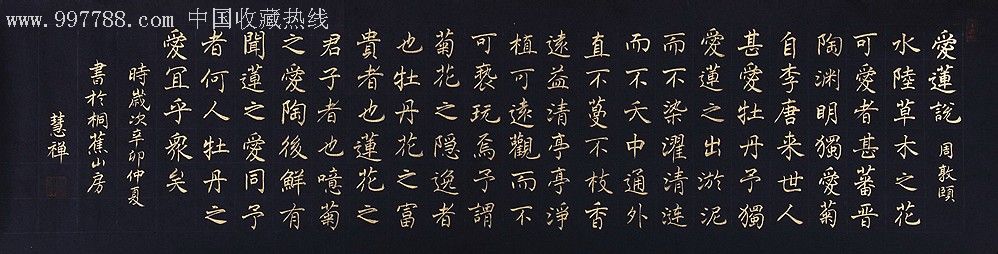 www.997788.com 中国收藏热线
愛蓮說 周敦頤
水陸草木之花
可愛者甚蕃晋
陶渊明獨愛菊
自李唐来世人
甚愛牡丹予獨
愛蓮之出淤泥
而不染濯清涟
而不夭中通外
直不蔓不枝香
遠益清亭亭淨
植可遠觀而不
可亵玩焉予謂
菊花之隱逸者
也牡丹花之富
貴者也蓮花之
君子者也噫菊
之愛陶後鮮有
聞蓮之愛同予
者何人牡丹之
愛宜乎衆矣
時歲次辛卯仲夏
書於桐蕉山房
慧禅